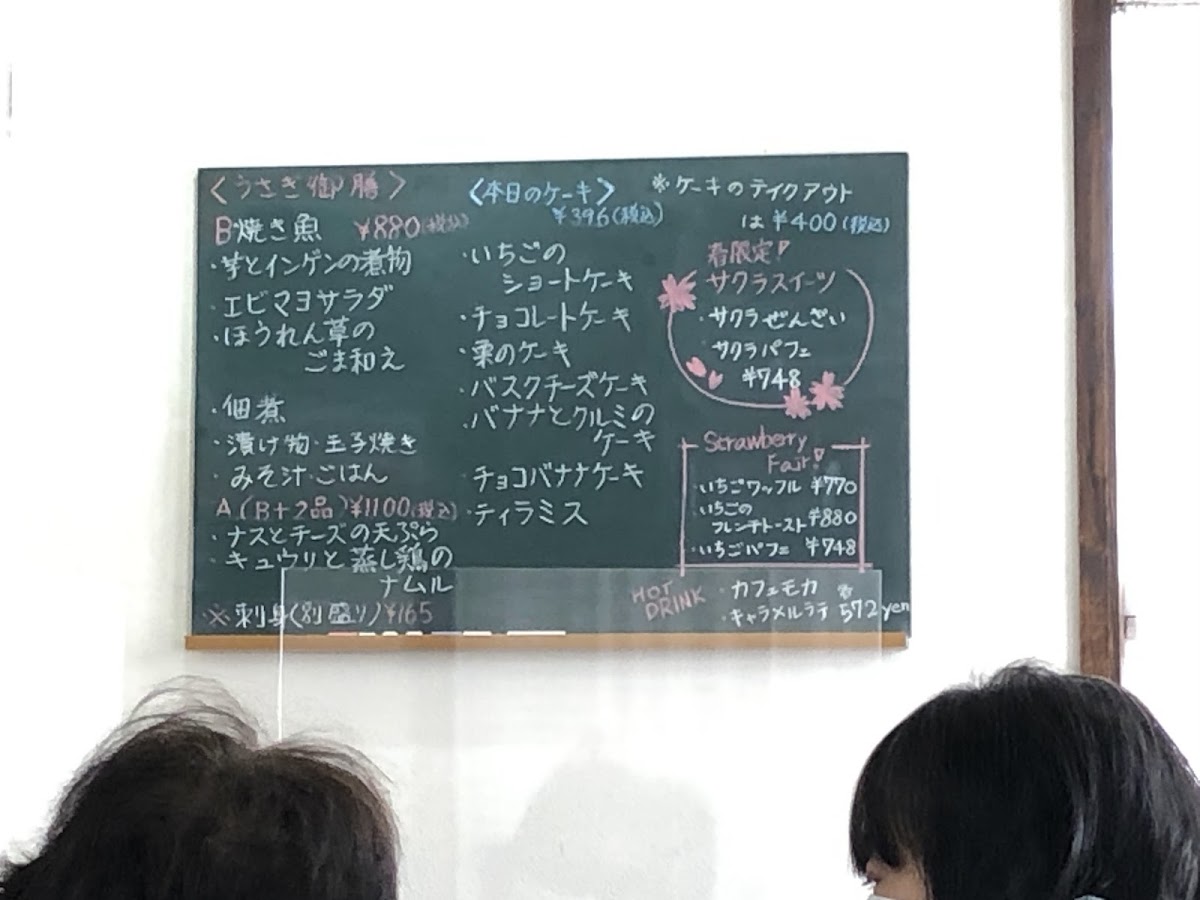 〈うさぎ御膳〉
B焼き魚 ¥880(税込)
・芋とインゲンの煮物
・エビマヨサラダ
・ほうれん草の
ごま和え
・佃煮
・漬け物・玉子焼き
・みそ汁・ごはん
A(B+2品)¥1100(税込)
・ナスとチーズの天ぷら
・キュウリと蒸し鶏の
ナムル
※刺身(別盛り)¥165
〈本日のケーキ〉
¥396(税込)
・いちごの
ショートケーキ
・チョコレートケーキ
・栗のケーキ
・バスクチーズケーキ
・バナナとクルミの
ケーキ
・チョコバナナケーキ
・ティラミス
※ケーキのテイクアウト
は¥400(税込)
春限定!
サクラスイーツ
・サクラぜんざい
・サクラパフェ
¥748
Strawberry
Fair!
・いちごワッフル ¥770
・いちごの
フレンチトースト ¥880
・いちごパフェ ¥748
HOT
DRINK
・カフェモカ
・キャラメルラテ 572yen